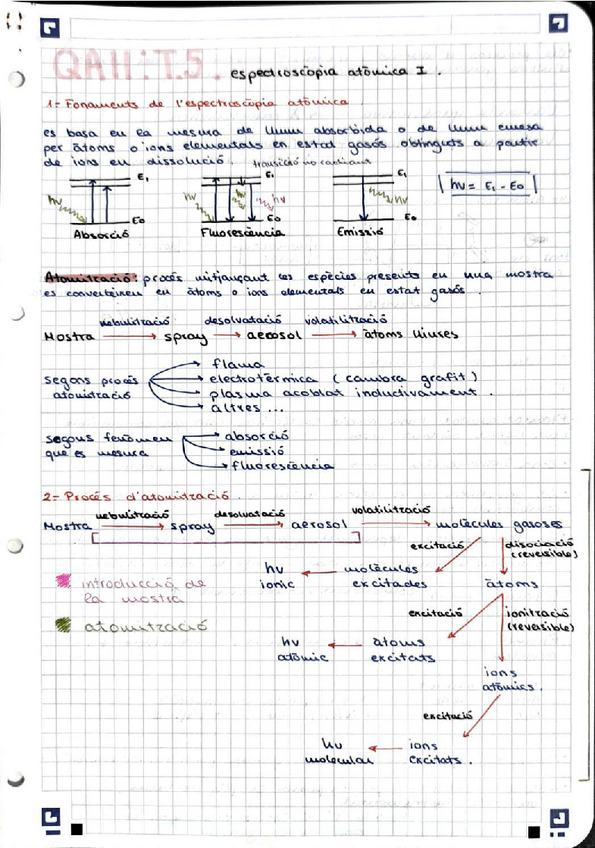 QAII: T.5. espectroscòpia atòmica I.
1- Fonaments de l'espectroscòpia atòmica.
es basa en la mesura de llum absorbida o de llum emesa
per àtoms o ions elementals en estat gasós obtinguts a partir
de ions en dissolució.
transició no radiant
E1 E1 E1
hν hν hν hν
hν = E1 - E0
E0 E0 E0
Absorció Fluorescència Emissió
Atomització: procés mitjançant les espècies presents en una mostra
es converteixen en àtoms o ions elementals en estat gasós.
nebulització desolvatació volatilització
Mostra → spray → aerosol → àtoms lliures
flama
segons procés electrotèrmica (cambra grafit)
atomització plasma acoblat inductivament.
altres...
segons fenòmen absorció
que es mesura emissió
fluorescència
2- Procés d'atomització.
nebulització desolvatació volatilització
Mostra → spray → aerosol → molècules gasoses
excitació disociació
(reversible)
hν molècules
ionic excitades àtoms
introducció de
la mostra
excitació ionització
(reversible)
atomització
hν àtoms
atòmic excitats
ions
atòmics.
excitació
hν ions
molecular excitats.